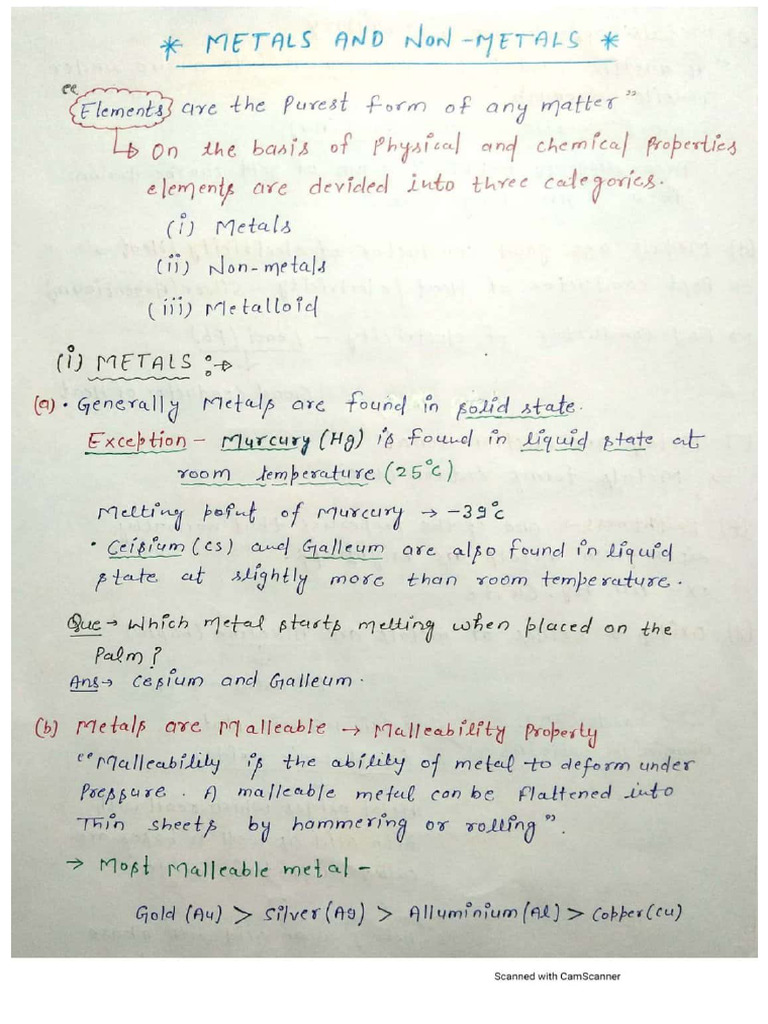 * METALS AND NON-METALS *
"Elements are the Purest form of any matter"
↳ On the basis of Physical and chemical Properties
elements are devided into three categories.
(i) Metals
(ii) Non-metals
(iii) Metalloid
(i) METALS :→
(a) • Generally Metals are found in solid state.
Exception - Murcury (Hg) is found in liquid state at
room temperature (25°c)
Melting point of Murcury → -39°c
• Ceisium (cs) and Galleum are also found in liquid
state at slightly more than room temperature.
Que → Which metal starts melting when placed on the
Palm?
Ans → Cesium and Galleum.
(b) Metals are Malleable → Malleability Property
"Malleability is the ability of metal to deform under
Pressure. A malleable metal can be flattened into
Thin sheets by hammering or rolling".
→ Most Malleable metal -
Gold (Au) > Silver (Ag) > Alluminium (Al) > Copper (cu)
Scanned with CamScanner